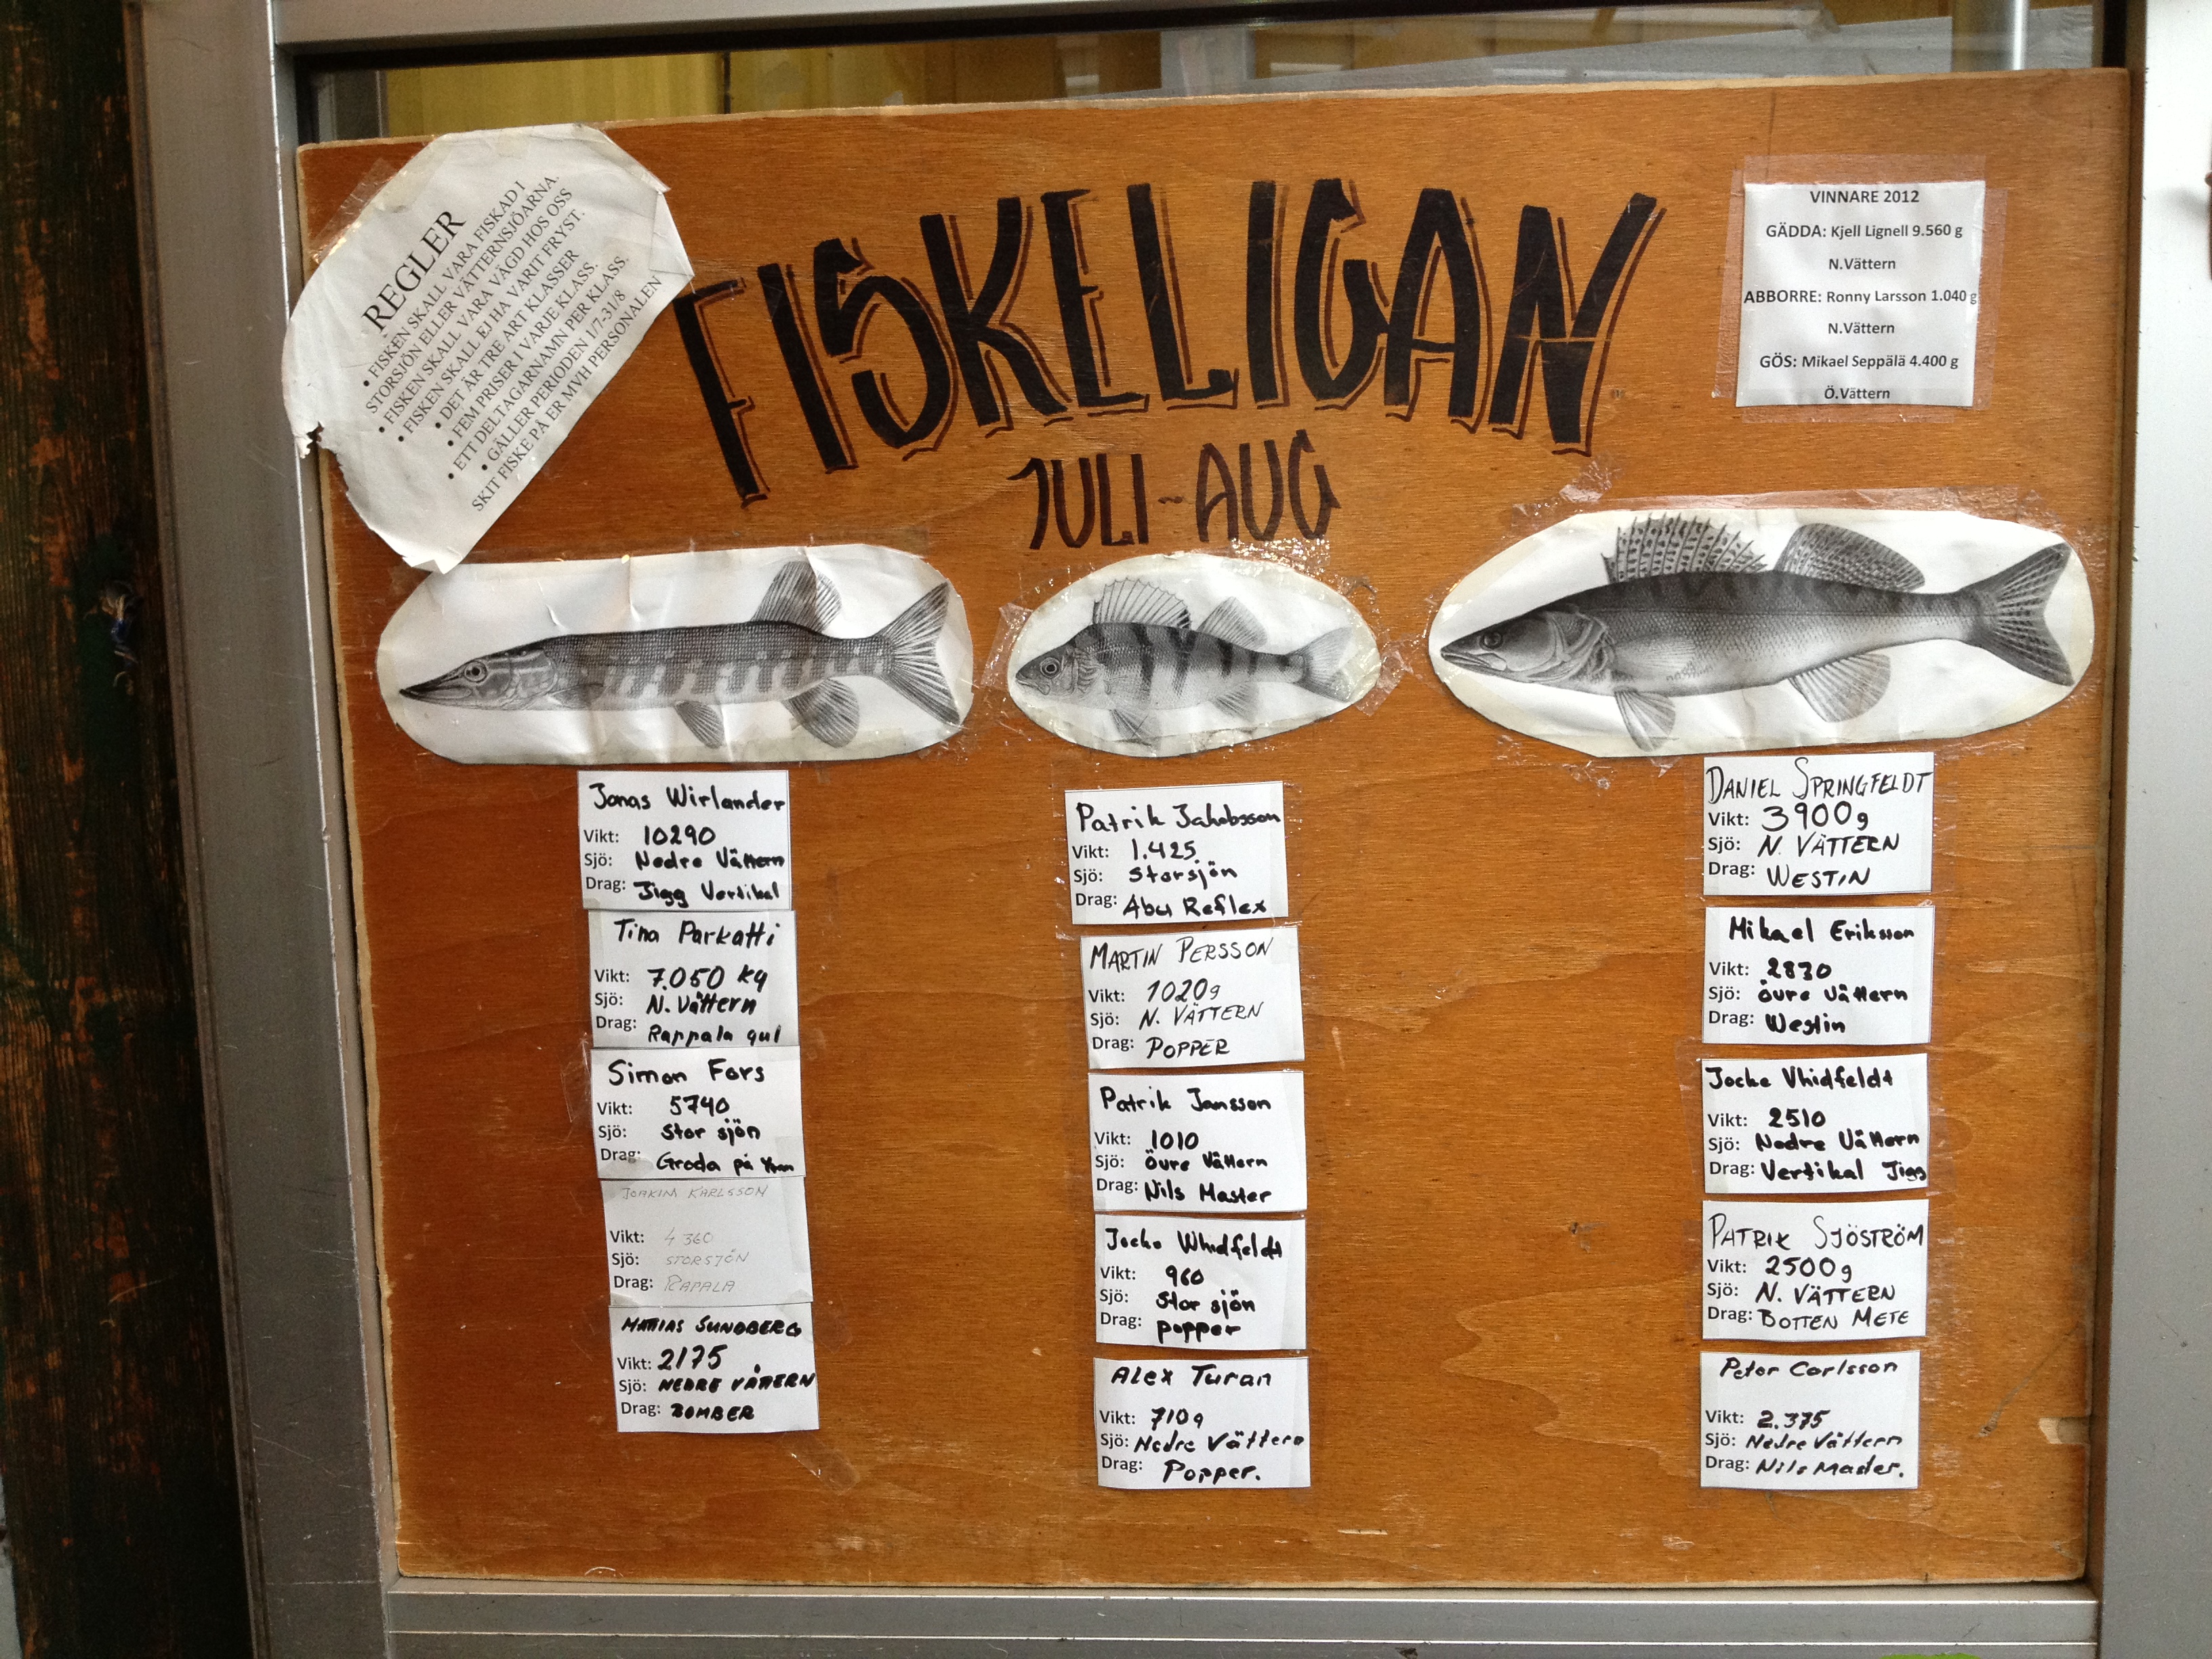 REGLER
• FISKEN SKALL VARA FISKAD I
STORSJÖN ELLER VÄTTERNSJÖARNA.
• FISKEN SKALL VARA VÄGD HOS OSS
• FISKEN SKALL EJ HA VARIT FRYST.
• DET ÄR TRE ART KLASSER
• FEM PRISER I VARJE KLASS.
• ETT DELTAGARNAMN PER KLASS.
• GÄLLER PERIODEN 1/7-31/8
SKIT FISKE PÅ ER MVH PERSONALEN
FISKELIGAN
JULI-AUG
VINNARE 2012
GÄDDA: Kjell Lignell 9.560 g
N.Vättern
ABBORRE: Ronny Larsson 1.040 g
N.Vättern
GÖS: Mikael Seppälä 4.400 g
Ö.Vättern
Jonas Wirlander
Vikt: 10290
Sjö: Nedre Vättern
Drag: Jigg Vertikal
Tina Parkatti
Vikt: 7.050 kg
Sjö: N. Vättern
Drag: Rappala gul
Simon Fors
Vikt: 5740
Sjö: Stor sjön
Drag: Groda på
JOAKIM KARLSSON
Vikt: 4360
Sjö: STORSJÖN
Drag: RAPALA
MATTIAS SUNDBERG
Vikt: 2175
Sjö: NEDRE VÄTTERN
Drag: BOMBER
Patrik Jakobsson
Vikt: 1.425
Sjö: Storsjön
Drag: Abu Reflex
MARTIN PERSSON
Vikt: 1020g
Sjö: N. VÄTTERN
Drag: POPPER
Patrik Jansson
Vikt: 1010
Sjö: Övre Vättern
Drag: Nils Master
Jocke Whidfeldt
Vikt: 960
Sjö: Stor sjön
Drag: popper
Alex Turan
Vikt: 710g
Sjö: Nedre Vättern
Drag: Popper.
DANIEL SPRINGFELDT
Vikt: 3900g
Sjö: N. VÄTTERN
Drag: WESTIN
Mikael Eriksson
Vikt: 2830
Sjö: Övre Vättern
Drag: Westin
Jocke Vhidfeldt
Vikt: 2510
Sjö: Nedre Vättern
Drag: Vertikal Jigg
PATRIK SJÖSTRÖM
Vikt: 2500g
Sjö: N. VÄTTERN
Drag: BOTTEN METE
Peter Carlsson
Vikt: 2.375
Sjö: Nedre Vättern
Drag: Nils Master.